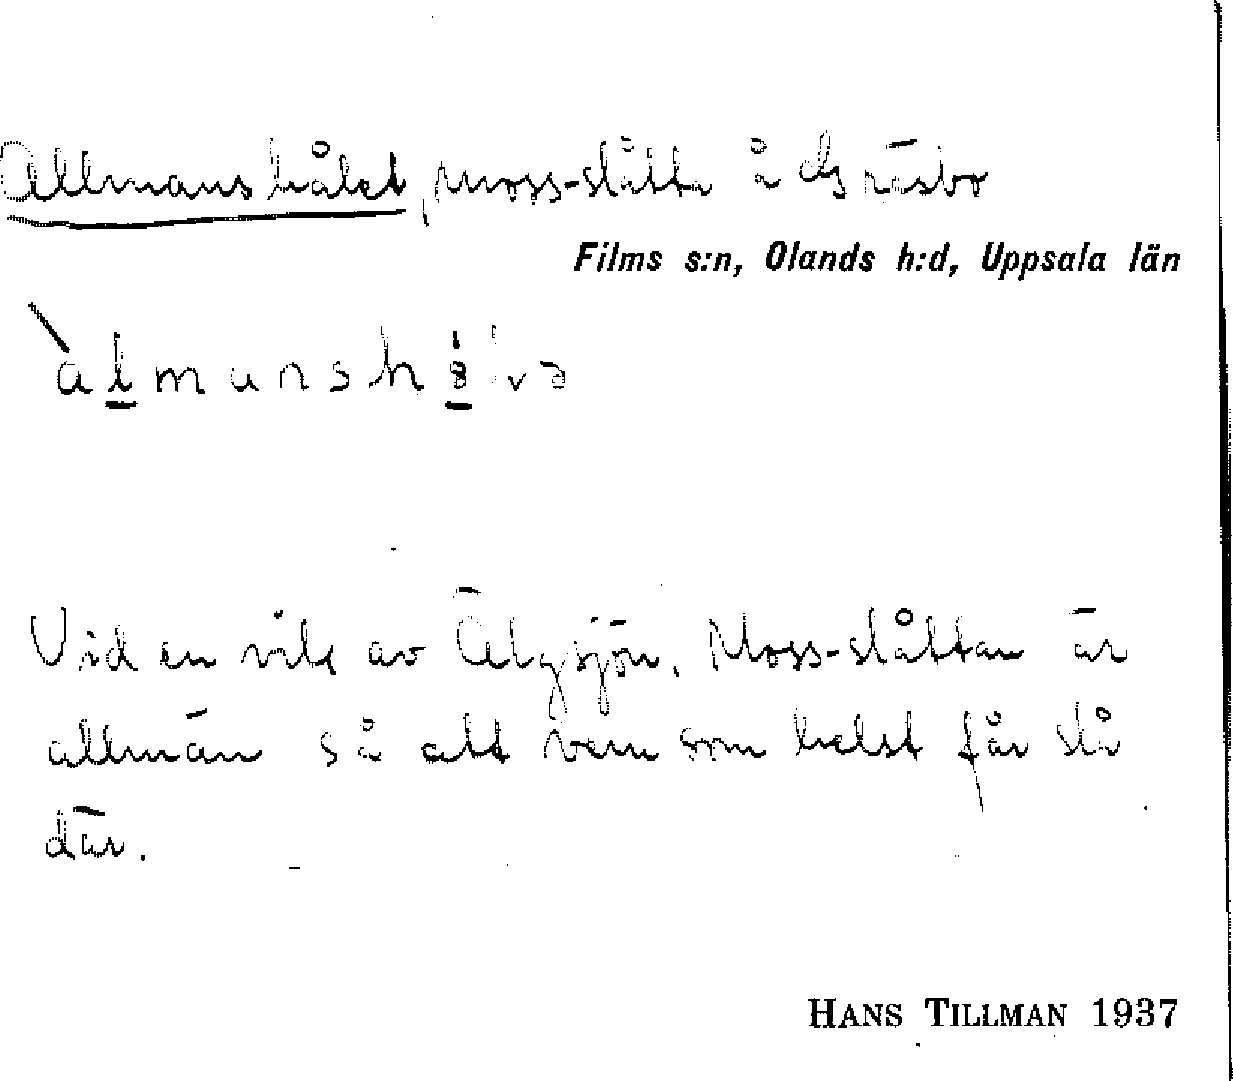 Allmanshålet, moss-slått å Gräsbo
Films s:n, Olands h:d, Uppsala län
Vid en vik av Älgsjön. Moss-slåttan är
allmän så att vem som helst får slå
där.
HANS TILLMAN 1937